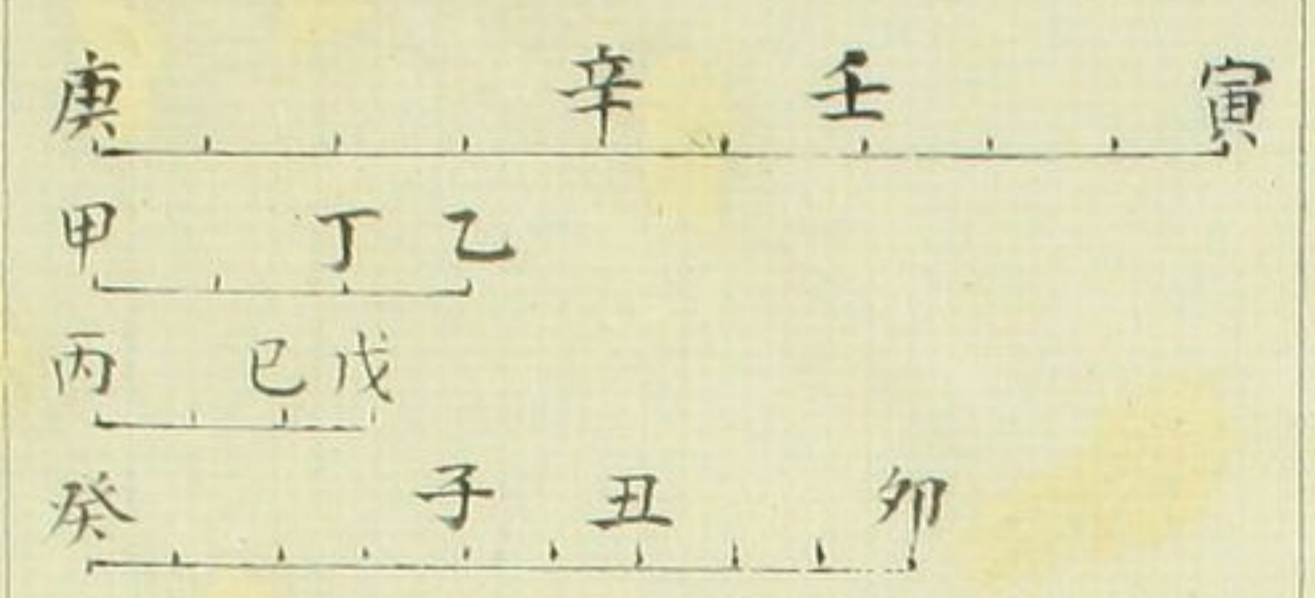 庚 辛 壬 寅
甲 丁 乙
丙 已 戊
癸 子 丑 卯